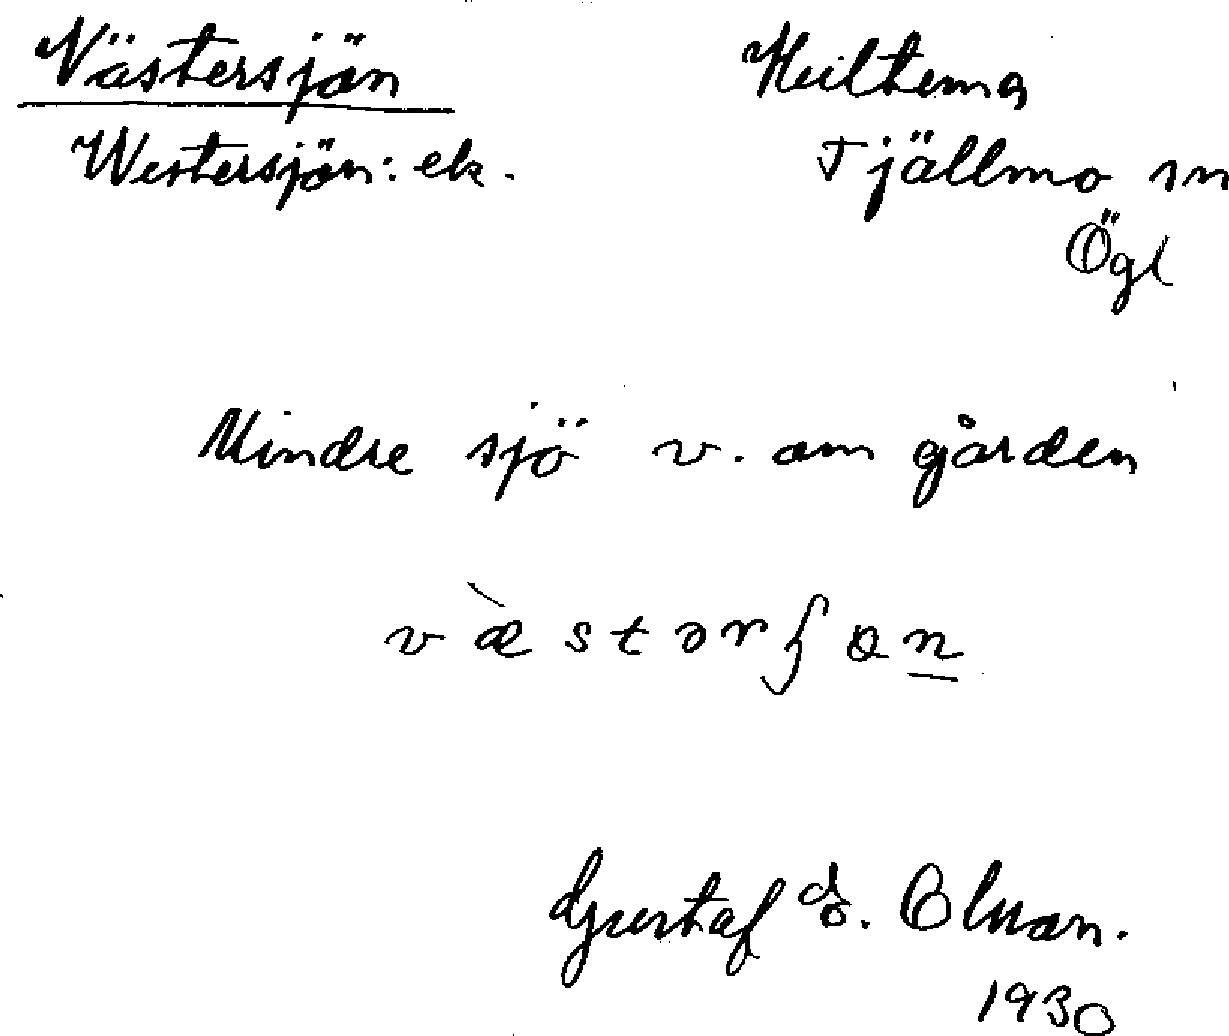 Västersjön Hultema
Westersjön: ek. Tjällmo sn
Ögl
Mindre sjö v. om gården
v æ̀ s t ə r ʃ ɵ n
Gustaf S. Olsson.
1930